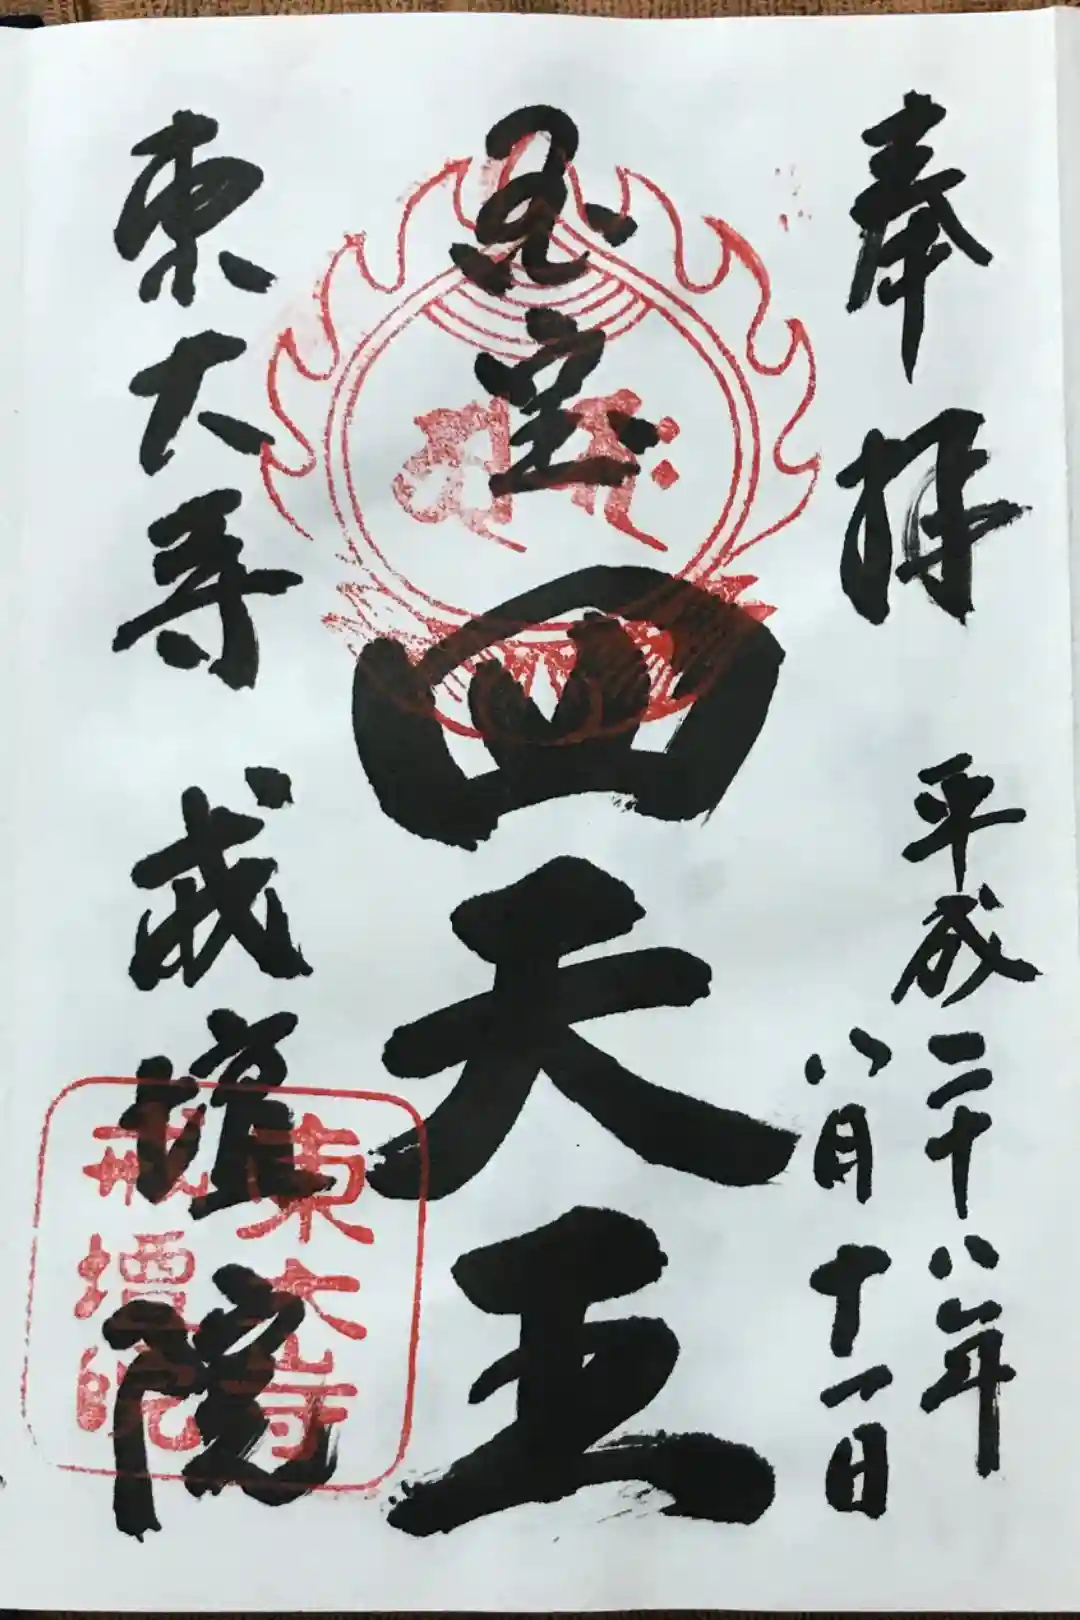 奉拝 平成二十八年
八月十一日
国宝 四天王
東大寺 戒壇院
東大寺
戒壇院